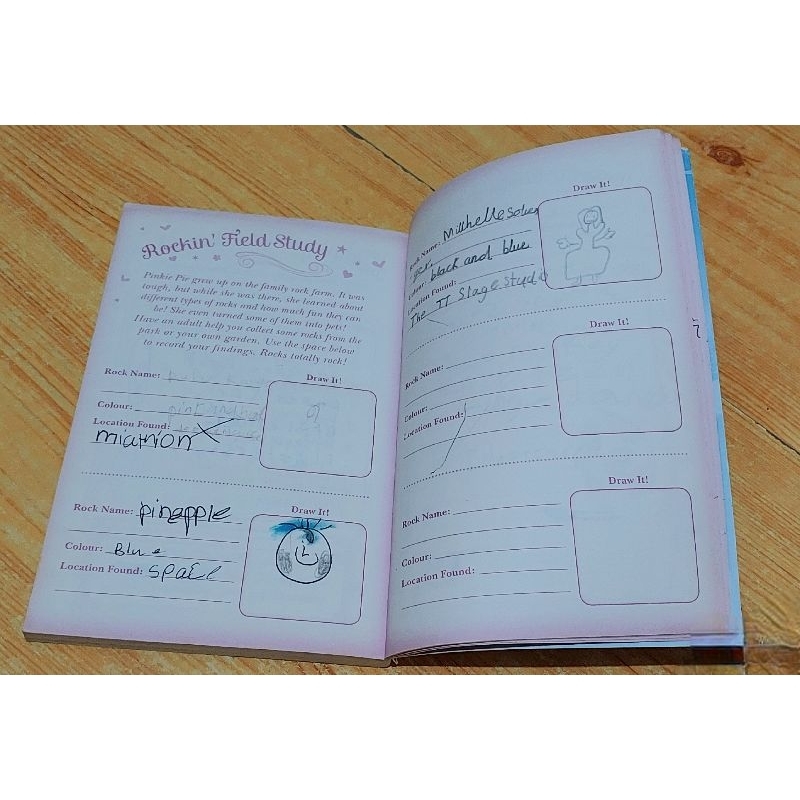 Rockin' Field Study
Pinkie Pie grew up on the family rock farm. It was
tough, but while she was there, she learned about
different types of rocks and how much fun they can
be! She even turned some of them into pets!
Have an adult help you collect some rocks from the
park or your own garden. Use the space below
to record your findings. Rocks totally rock!
Rock Name:
Draw It!
Colour:
Location Found:
Rock Name: pineapple
Draw It!
Colour: Blue
Location Found: Space
Draw It!
Rock Name:
Colour: black and blue
Location Found:
The Stage Studio
Draw It!
Rock Name:
Colour:
Location Found:
Draw It!
Rock Name:
Colour:
Location Found: